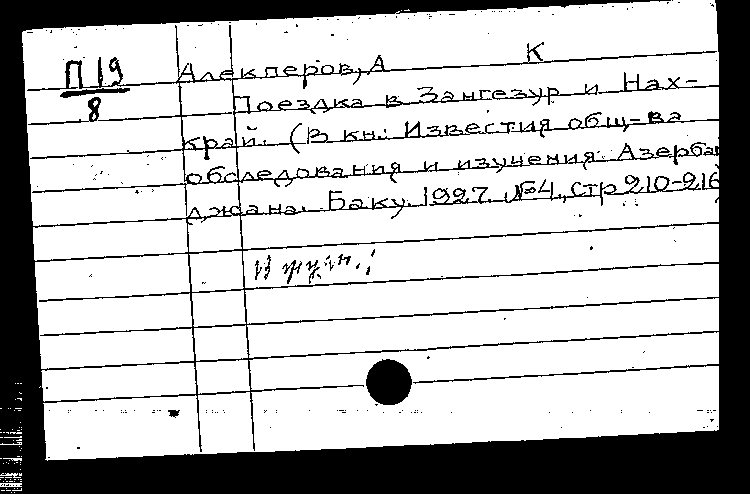 К
П 19
8
Алекперов, А
Поездка в Зангезур и Нах-
край. (В кн: Известия общ-ва
обследования и изучения Азербай
джана. Баку. 1927. №4., стр 210-216)